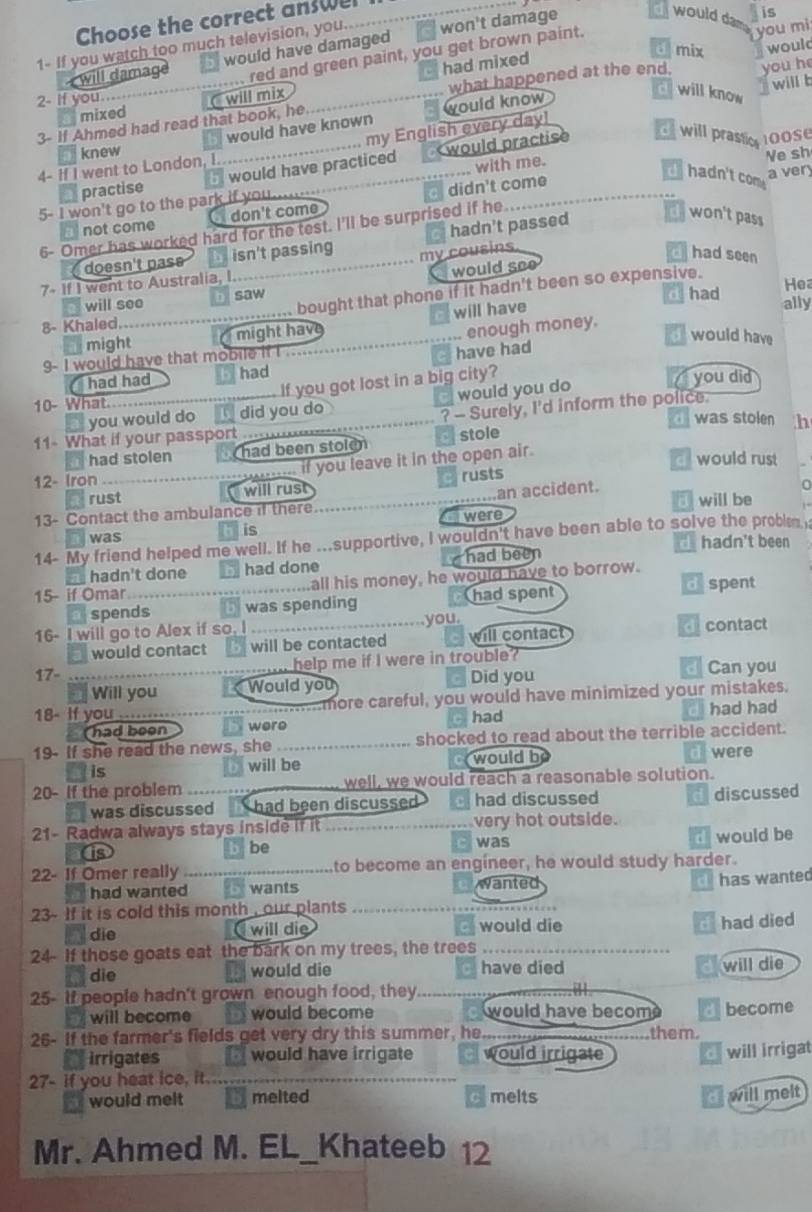 Choose the correct answer
1- If you watch too much television, you
a will damage b would have damaged c won't damage d would dam
2- If you red and green paint, you get brown paint.
a mixed b will mix c had mixed d mix
3- If Ahmed had read that book, he what happened at the end.
a knew b would have known c would know d will know
4- If I went to London, I my English every day!
a practise b would have practiced c would practise d will prastice
5- I won't go to the park if you with me.
a not come b don't come c didn't come d hadn't come
6- Omer has worked hard for the test. I'll be surprised if he
a doesn't pass b isn't passing c hadn't passed d won't pass
7- If I went to Australia, I my cousins
a will see b saw c would see d had seen
8- Khaled bought that phone if it hadn't been so expensive.
a might b might have c will have d had
9- I would have that mobile if I enough money.
a had had b had c have had d would have
10- What If you got lost in a big city?
a you would do b did you do c would you do d you did
11- What if your passport ? – Surely, I'd inform the police.
a had stolen b had been stolen c stole d was stolen
12- Iron if you leave it in the open air.
a rust b will rust c rusts d would rust
13- Contact the ambulance if there an accident.
a was b is c were d will be
14- My friend helped me well. If he ...supportive, I wouldn't have been able to solve the problem.
a hadn't done b had done c had been d hadn't been
15- if Omar all his money, he would have to borrow.
a spends b was spending c had spent d spent
16- I will go to Alex if so, I you.
a would contact b will be contacted c will contact d contact
17- help me if I were in trouble?
a Will you b Would you c Did you d Can you
18- If you more careful, you would have minimized your mistakes.
a had been b were c had d had had
19- If she read the news, she shocked to read about the terrible accident.
a is b will be c would be d were
20- If the problem well, we would reach a reasonable solution.
a was discussed b had been discussed c had discussed d discussed
21- Radwa always stays inside if it very hot outside.
a is b be c was d would be
22- If Omer really to become an engineer, he would study harder.
a had wanted b wants c wanted d has wanted
23- If it is cold this month , our plants
a die b will die c would die d had died
24- If those goats eat the bark on my trees, the trees
a die b would die c have died d will die
25- If people hadn't grown enough food, they ill.
a will become b would become c would have become d become
26- If the farmer's fields get very dry this summer, he them.
a irrigates b would have irrigate c would irrigate d will irrigat
27- if you heat ice, it
a would melt b melted c melts d will melt
Mr. Ahmed M. EL_Khateeb 12
is
you mi
would
you he
will b
loose
We sh
a very
Hea
ally